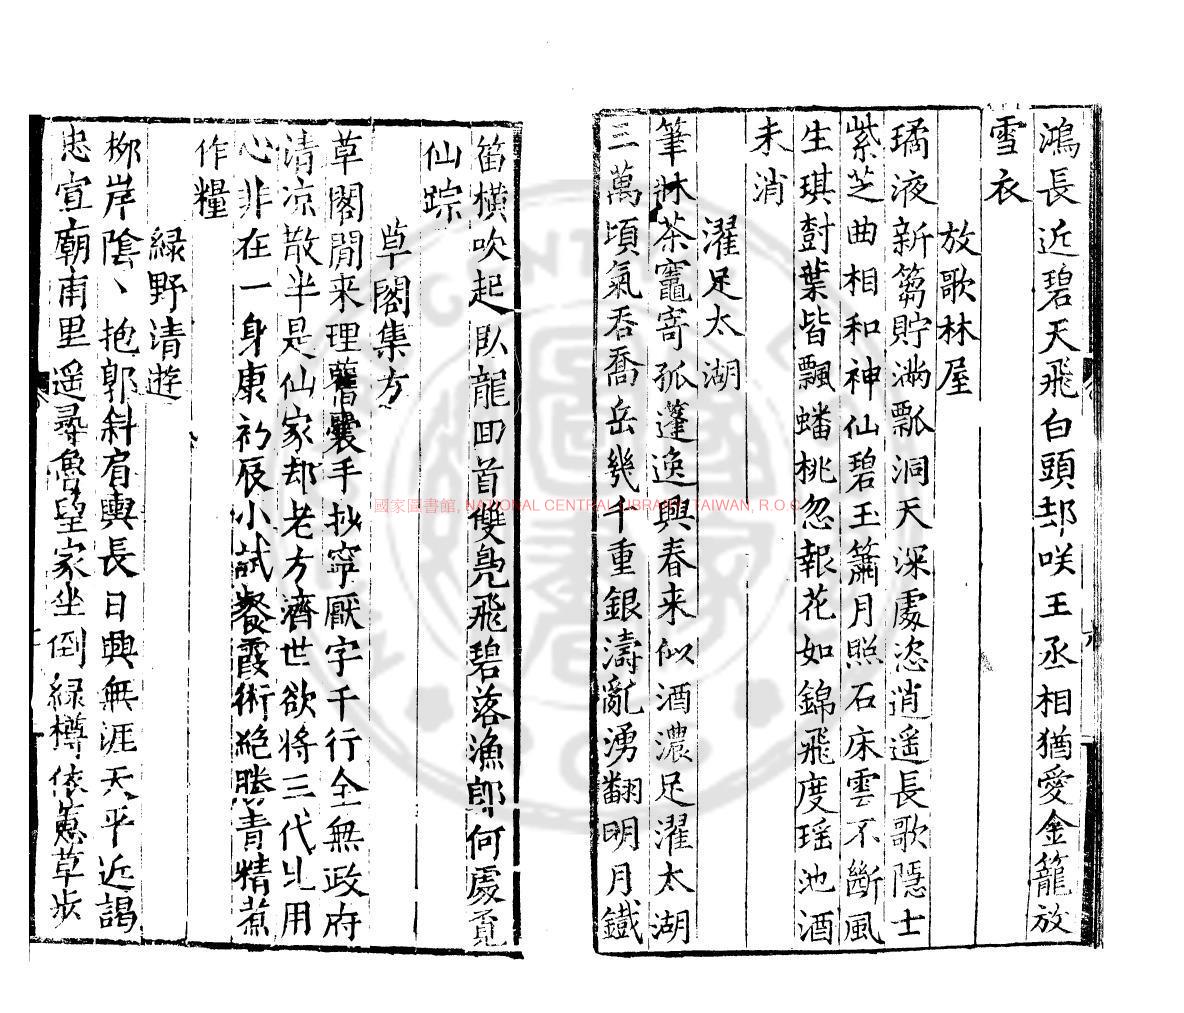 鴻長近碧天飛白頭却咲王丞相猶愛金籠放
雪衣
放歌林屋
璚液新篘貯滿瓢洞天深處恣逍遥長歌隱士
紫芝曲相和神仙碧玉簫月照石床雲不斷風
生琪樹葉皆飄蟠桃忽報花如錦飛度瑶池酒
未消
濯足太湖
筆牀茶竈寄孤蓬逸興春来似酒濃足濯太湖
三萬頃氣吞喬岳幾千重銀濤亂湧翻明月鐵
笛橫吹起臥龍回首雙鳧飛碧落漁郎何處覓
仙踪
草閣集方
草閣閒来理舊囊手抄寧厭字千行全無政府
清凉散半是仙家却老方濟世欲将三代匕用
心非在一身康初辰小試餐霞術絶勝青精煮
作糧
緑野清遊
栁岸隂丶抱郭斜肩輿長日興無涯天平近謁
忠宣廟甫里遥尋魯望家坐倒緑樽依蕙草步
國家圖書館, NATIONAL CENTRAL LIBRARY, TAIWAN, R.O.C